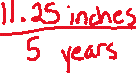 11.25 inches
5 years